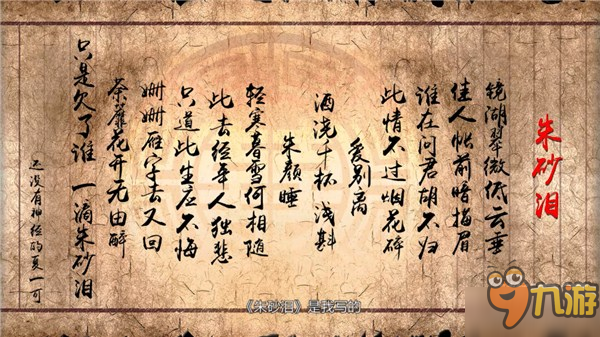 朱砂泪
镜湖翠微低云垂
佳人帐前暗描眉
谁在问君胡不归
此情不过烟花碎
爱别离
酒浇千杯 浅斟
朱颜睡
轻寒暮雪何相随
此去经年人独悲
只道此生应不悔
姗姗雁字去又回
荼蘼花开无由醉
只是欠了谁 一滴朱砂泪
还没有神经的夏一可
《朱砂泪》是我写的
九游